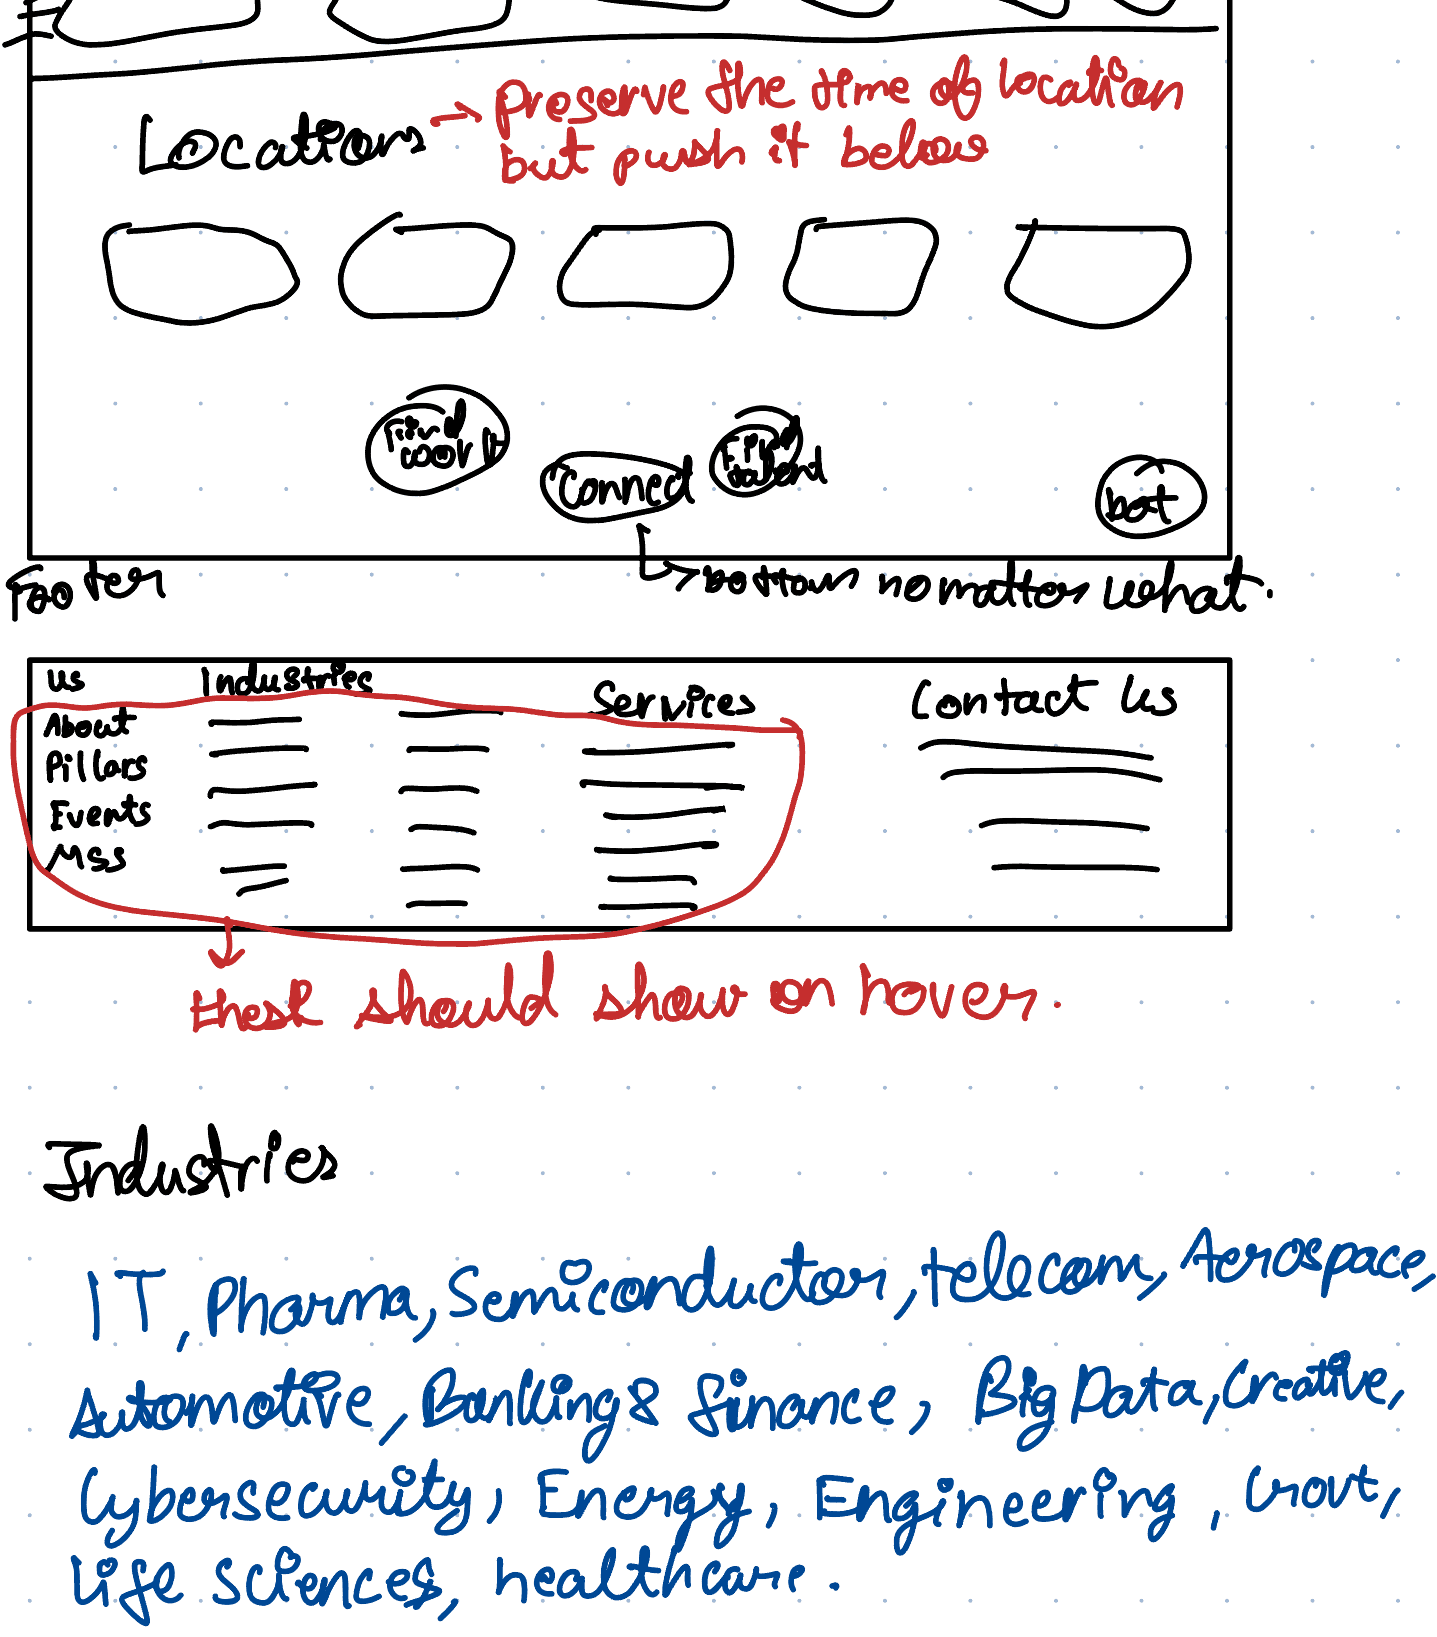 Locations → Preserve the time of location
but push it below
Find work
Connect
Find talent
bot
Footer
bottom no matter what.
Us
Industries
Services
Contact Us
About
Pillars
Events
MSS
these should show on hover.
Industries
IT, Pharma, Semiconductor, telecom, Aerospace,
Automotive, Banking & finance, Big Data, Creative,
Cybersecurity, Energy, Engineering, Govt,
Life sciences, healthcare.